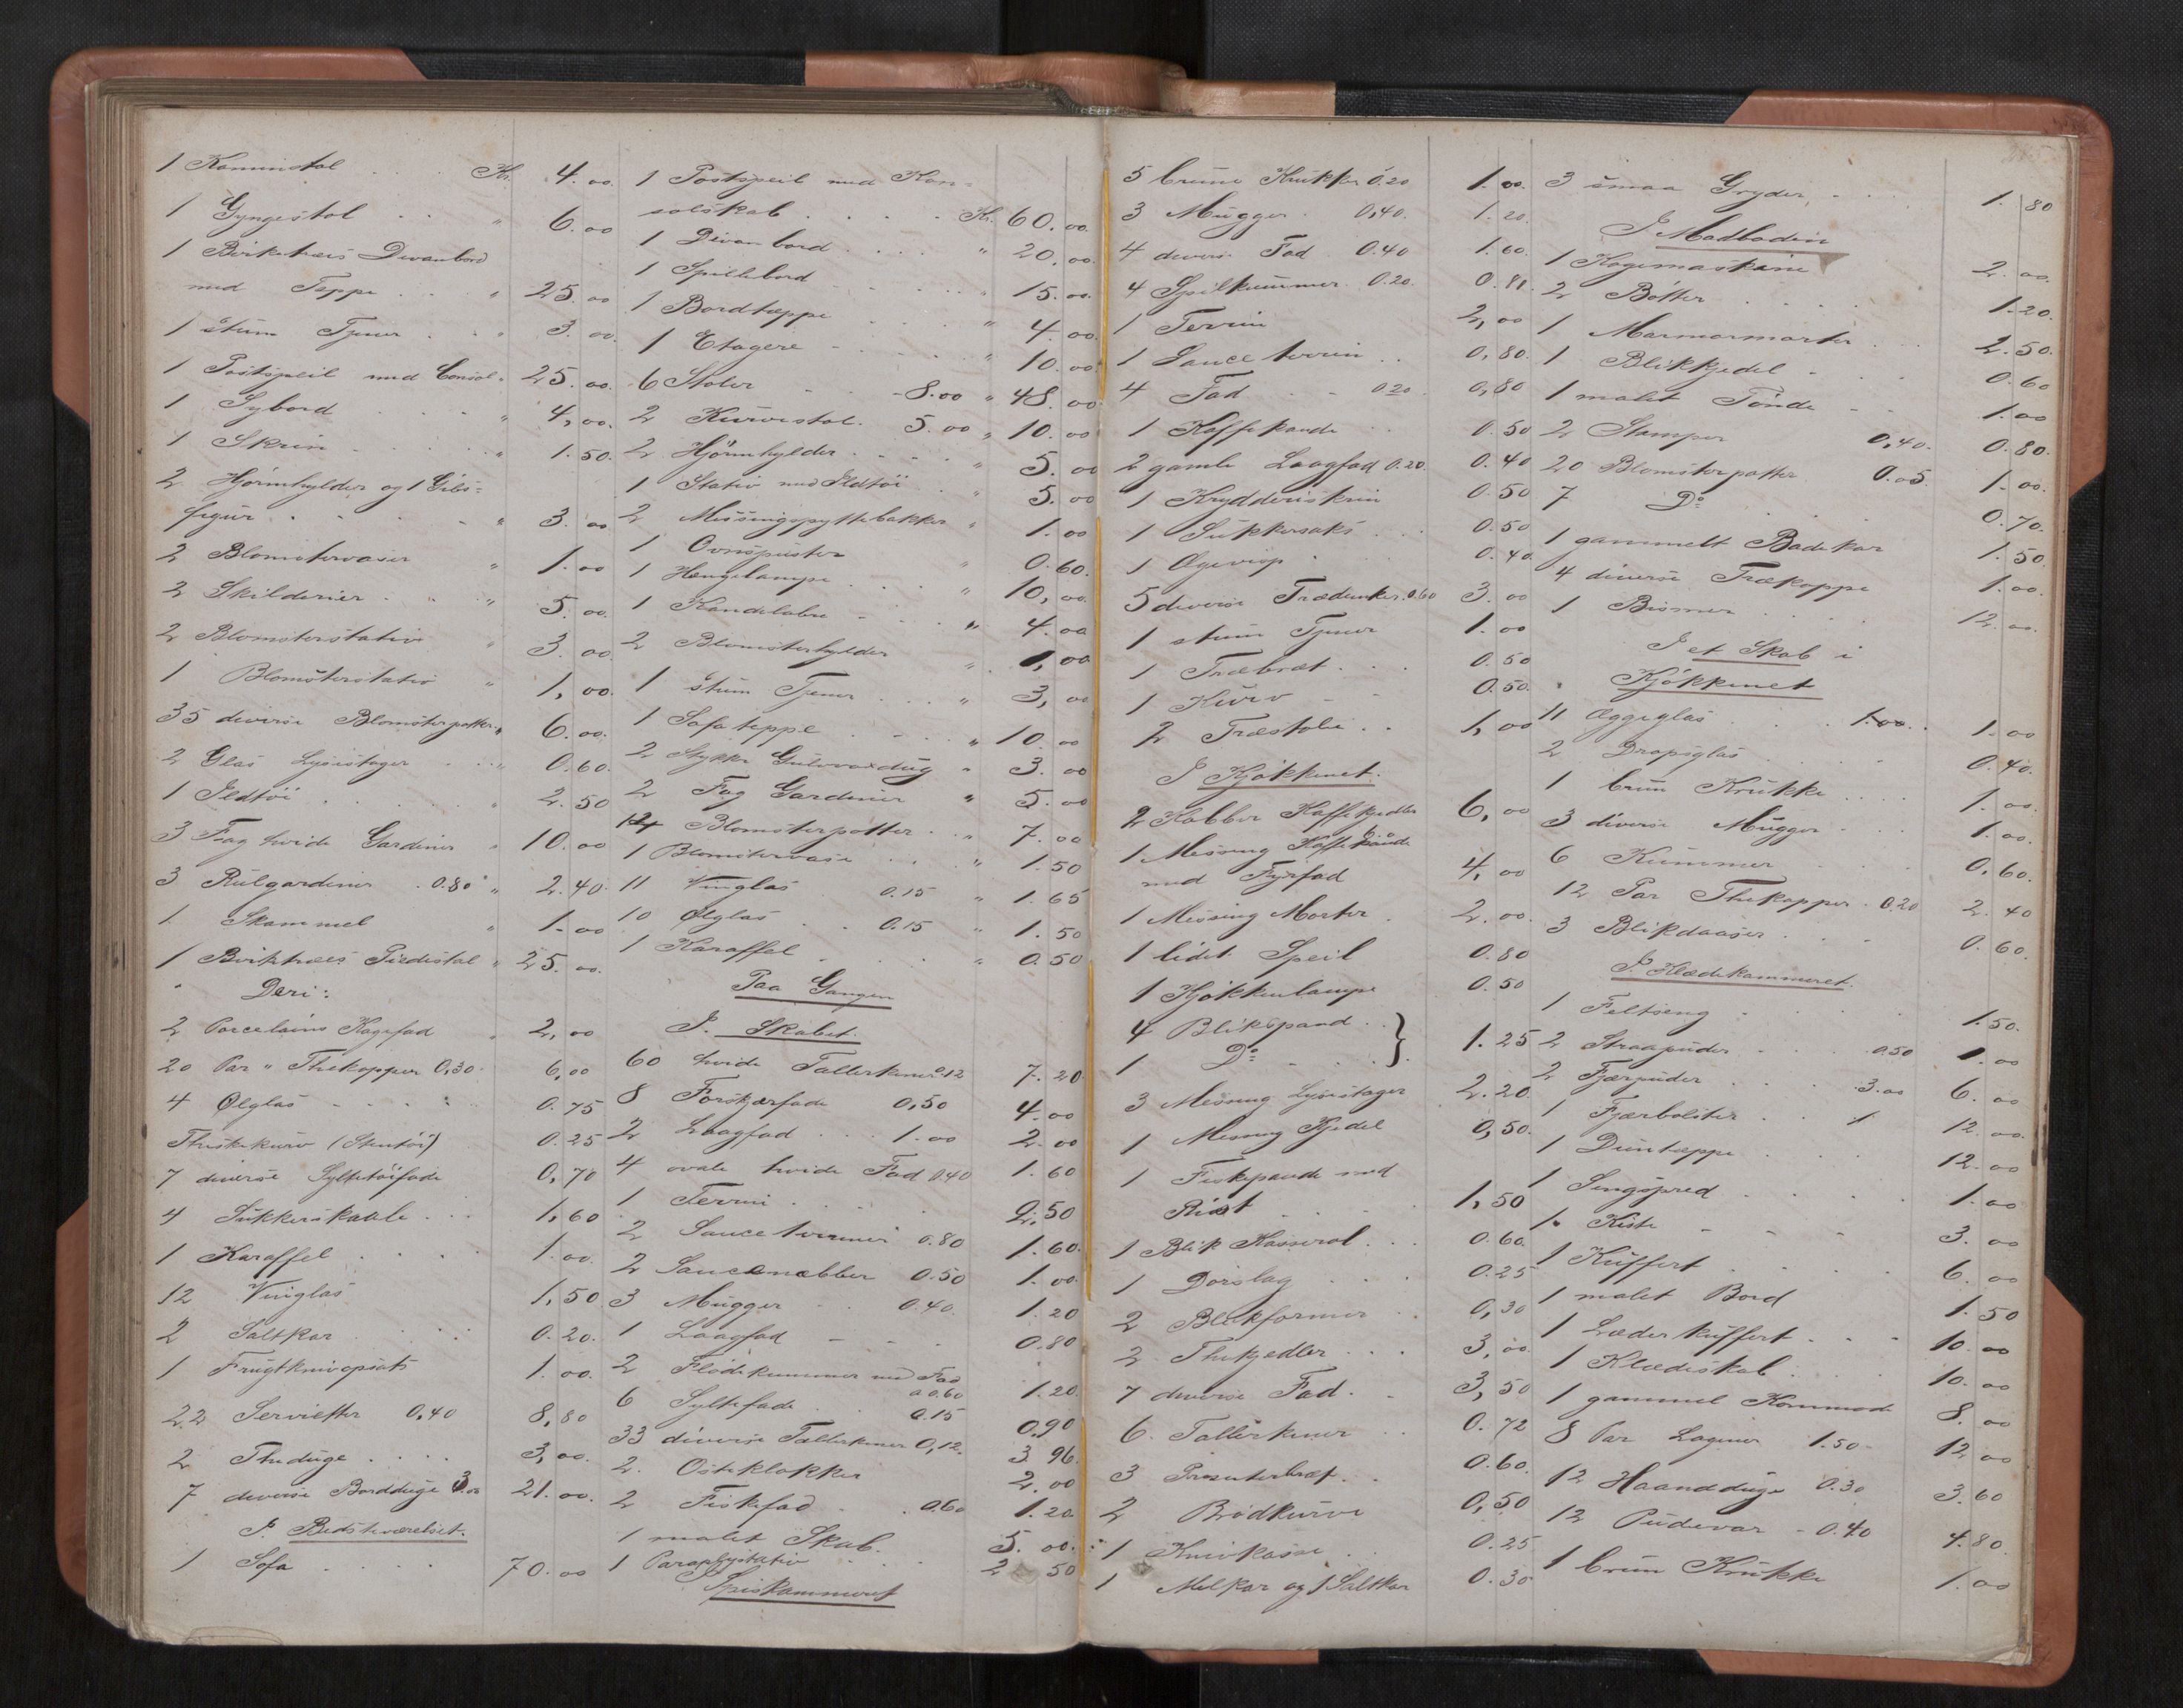 1 Kaminstol . . Kr. 4.00
1 Gyngestol . . " 6.00
1 Birketræs Divanbord
med Teppe . . " 25.00
1 stum Tjener . " 3.00
1 Postspeil med Consol " 25.00
1 Sybord . . . " 4,00
1 Skrin . . . . " 1.50
2 Hjørnhylder og 1 Gibs=
figur . . . . " 3.00
2 Blomstervaser " 1.00
2 Skilderier . . " 5.00
2 Blomsterstativ " 3.00
1 Blomsterstativ " 1,00
35 diverse Blomsterpotter " 6.00
2 Glas Lysestager . . " 0.60
1 Ildtøi . . . . " 2.50
3 Fag hvide Gardiner " 10.00
3 Rulgardiner . 0.80 " 2.40
1 Skammel " 1.00
1 Birketræs Piedistal " 25.00
Deri:
2 Porcelains Kagefad " 2,00
20 Par " Thekopper 0,30 6,00
4 Ølglas - - - 0.75
Theskekurv (Stentøi) 0.25
7 diverse Syltetøifade 0,70
4 Sukkerskaale . . . 1,60
1 Karaffel . . . . 1.00
12 Vinglas 1,50
2 Saltkar . . . 0.20
1 Frugtknivopsats 1.00
22 Servietter 0,40 8,80
2 Theduge . . . . 3,00
7 diverse Bordduge 3.00 21.00
I Bedsteværelset.
1 Sofa . . . . 70.00
1 Postspeil med Kon=
solskab . . . . Kr. 60.00
1 Divanbord . . . " 20.00
1 Spillebord . . . " 15.00
1 Bordtæppe . . . " 4.00
1 Etagere - . . . " 10.00
6 Stoler . . 8.00 " 48.00
2 Kurvestol. 5.00 " 10.00
2 Hjørnhylder . . . " 5.00
1 Stativ med Ildtøi . " 5.00
2 Messingspyttebakker " 1.00
1 Ovnspuster " 0.60
1 Hængelampe . . . " 10,00
1 Kandelabre - . . . " 4.00
2 Blomsterhylder " 1,00
1 stum Tjener . . " 3,00
1 Sofateppe . . . " 10.00
2 Stykke Gulvvoxdug " 3.00
2 Fag Gardiner " 5.00
14 Blomsterpotter . . " 7.00
1 Blomstervase . . " 1.50
11 Vinglas 0.15 " 1.65
10 Ølglas . . 0.15 " 1.50
1 Karaffel . . . " 0.50
Paa Gangen
I. Skabet.
60 hvide Tallerkener 0.12 7.20
8 Forskjærfade 0,50 4.00
2 Laagfad . . . 1.00 2.00
4 ovale hvide Fad 0.40 1.60
1 Terrin . . . . 2.50
2 Sauceterriner 0.80 1.60
2 Saucenebber 0.50 1.00
3 Mugger . . 0.40 1.20
1 Laagfad - - - 0.80
2 Flødekummer med Fad
a 0.60 1.20
6 Syltefade . . 0.15 0.90
33 diverse Tallerkener 0,12 3.96
2 Osteklokker 2.00
2 Fiskefad . . 0.60 1.20
1 malet Skab. 5.00
1 Paraplystativ . . . 2.50
Spiskammeret
5 brune Krukker 0.20 1.00
3 Mugger . 0,40. 1.20
4 diverse Fad 0.40 1.60
4 Spilkummer 0.20. 0.80
1 Terrin 2,00
1 Sauceterrin . . 0,80
4 Fad . - 0.20 0,80
1 Kaffekande . . 0.50
2 gamle Laagfad 0.20 0.40
1 Krydderiskrin 0.50
1 Sukkersaks . . . 0.50
1 Øgevisp . . 0.40
5 diverse Trædunker 0.60 3.00
1 stum Tjener 1.00
1 Træbræt . . . 0.50
1 Kurv - - 0.50
2 Træstole . . 1,00
I Kjøkkenet.
2 Kobber Kaffekjedler 6,00
1 Messing Kaffekande
med Fyrfad 4,00
1 Messing Morter . 2.00
1 lidet Speil 0.80
1 Kjøkkenlampe 0.50
4 Blikspand . . }
1 Do - . . } 1.25
3 Messing Lysestager 2.20
1 Messing Kjedel 0,50
1 Fiskepande med
Rist . . . . 1,50
1 Blik Kasserol . . . 0.60
1 Dørslag . . . 0.25
2 Blikformer . 0,30
2 Thekjedler . . . 3,00
7 diverse Fad . . 3,50
6. Tallerkener . . 0.72
3 Præsenterbræt . . 0.60
2 Brødkurve 0,50
1 Knivkasse . . 0.25
1 Melkar og 1 Saltkar 0.30
3 smaa Gryder . . . 1.80
I Madboden
1 Kogemaskine 2.00
2 Bøtter . . . . 1.20
1 Marmormorter . . . 2.50
1 Blikkjedel - . . . 0.60
1 malet Tønde - - 1.00
2 Stamper 0,40. 0.80
20 Blomsterpotter 0.05. 1.00
7 Do . . . 0.70
1 gammelt Badekar 1.50
4 diverse Trækoppe 1.00
1 Bismer . . . 12.00
I et Skab i
Kjøkkenet
11 Æggeglas . . . 1.00. 1.00
2 Dropsglas . . . . 0.40
1 brun Krukke . . . . 1.00
3 diverse Mugger . . . 1.00
6 Kummer . . 0,60
12 Par Thekopper . 0.20 2.40
3 Blikdaaser . . . 0.60
I Klædekammeret.
1 Feltseng - . . . 1.50
2 Straapuder . . . 0.50 1.00
2 Fjærpuder . . . 3.00 6.00
1 Fjærbolster . . . 12.00
1 Duntæppe . . . 12.00
1 Sengspred . . . . 1.00
1. Kiste - - - - 3.00
1 Kuffert . . . . 6.00
1 malet Bord 1.50
1 Læderkuffert . . . 10.00
1 Klædeskab . . . 10.00
1 gammel Kommode 8.00
8 Par Lagener 1.50 12.00
12 Haandduge 0.30 3.60
12 Pudevar - 0.40 4.80
1 brun Krukke 1.00